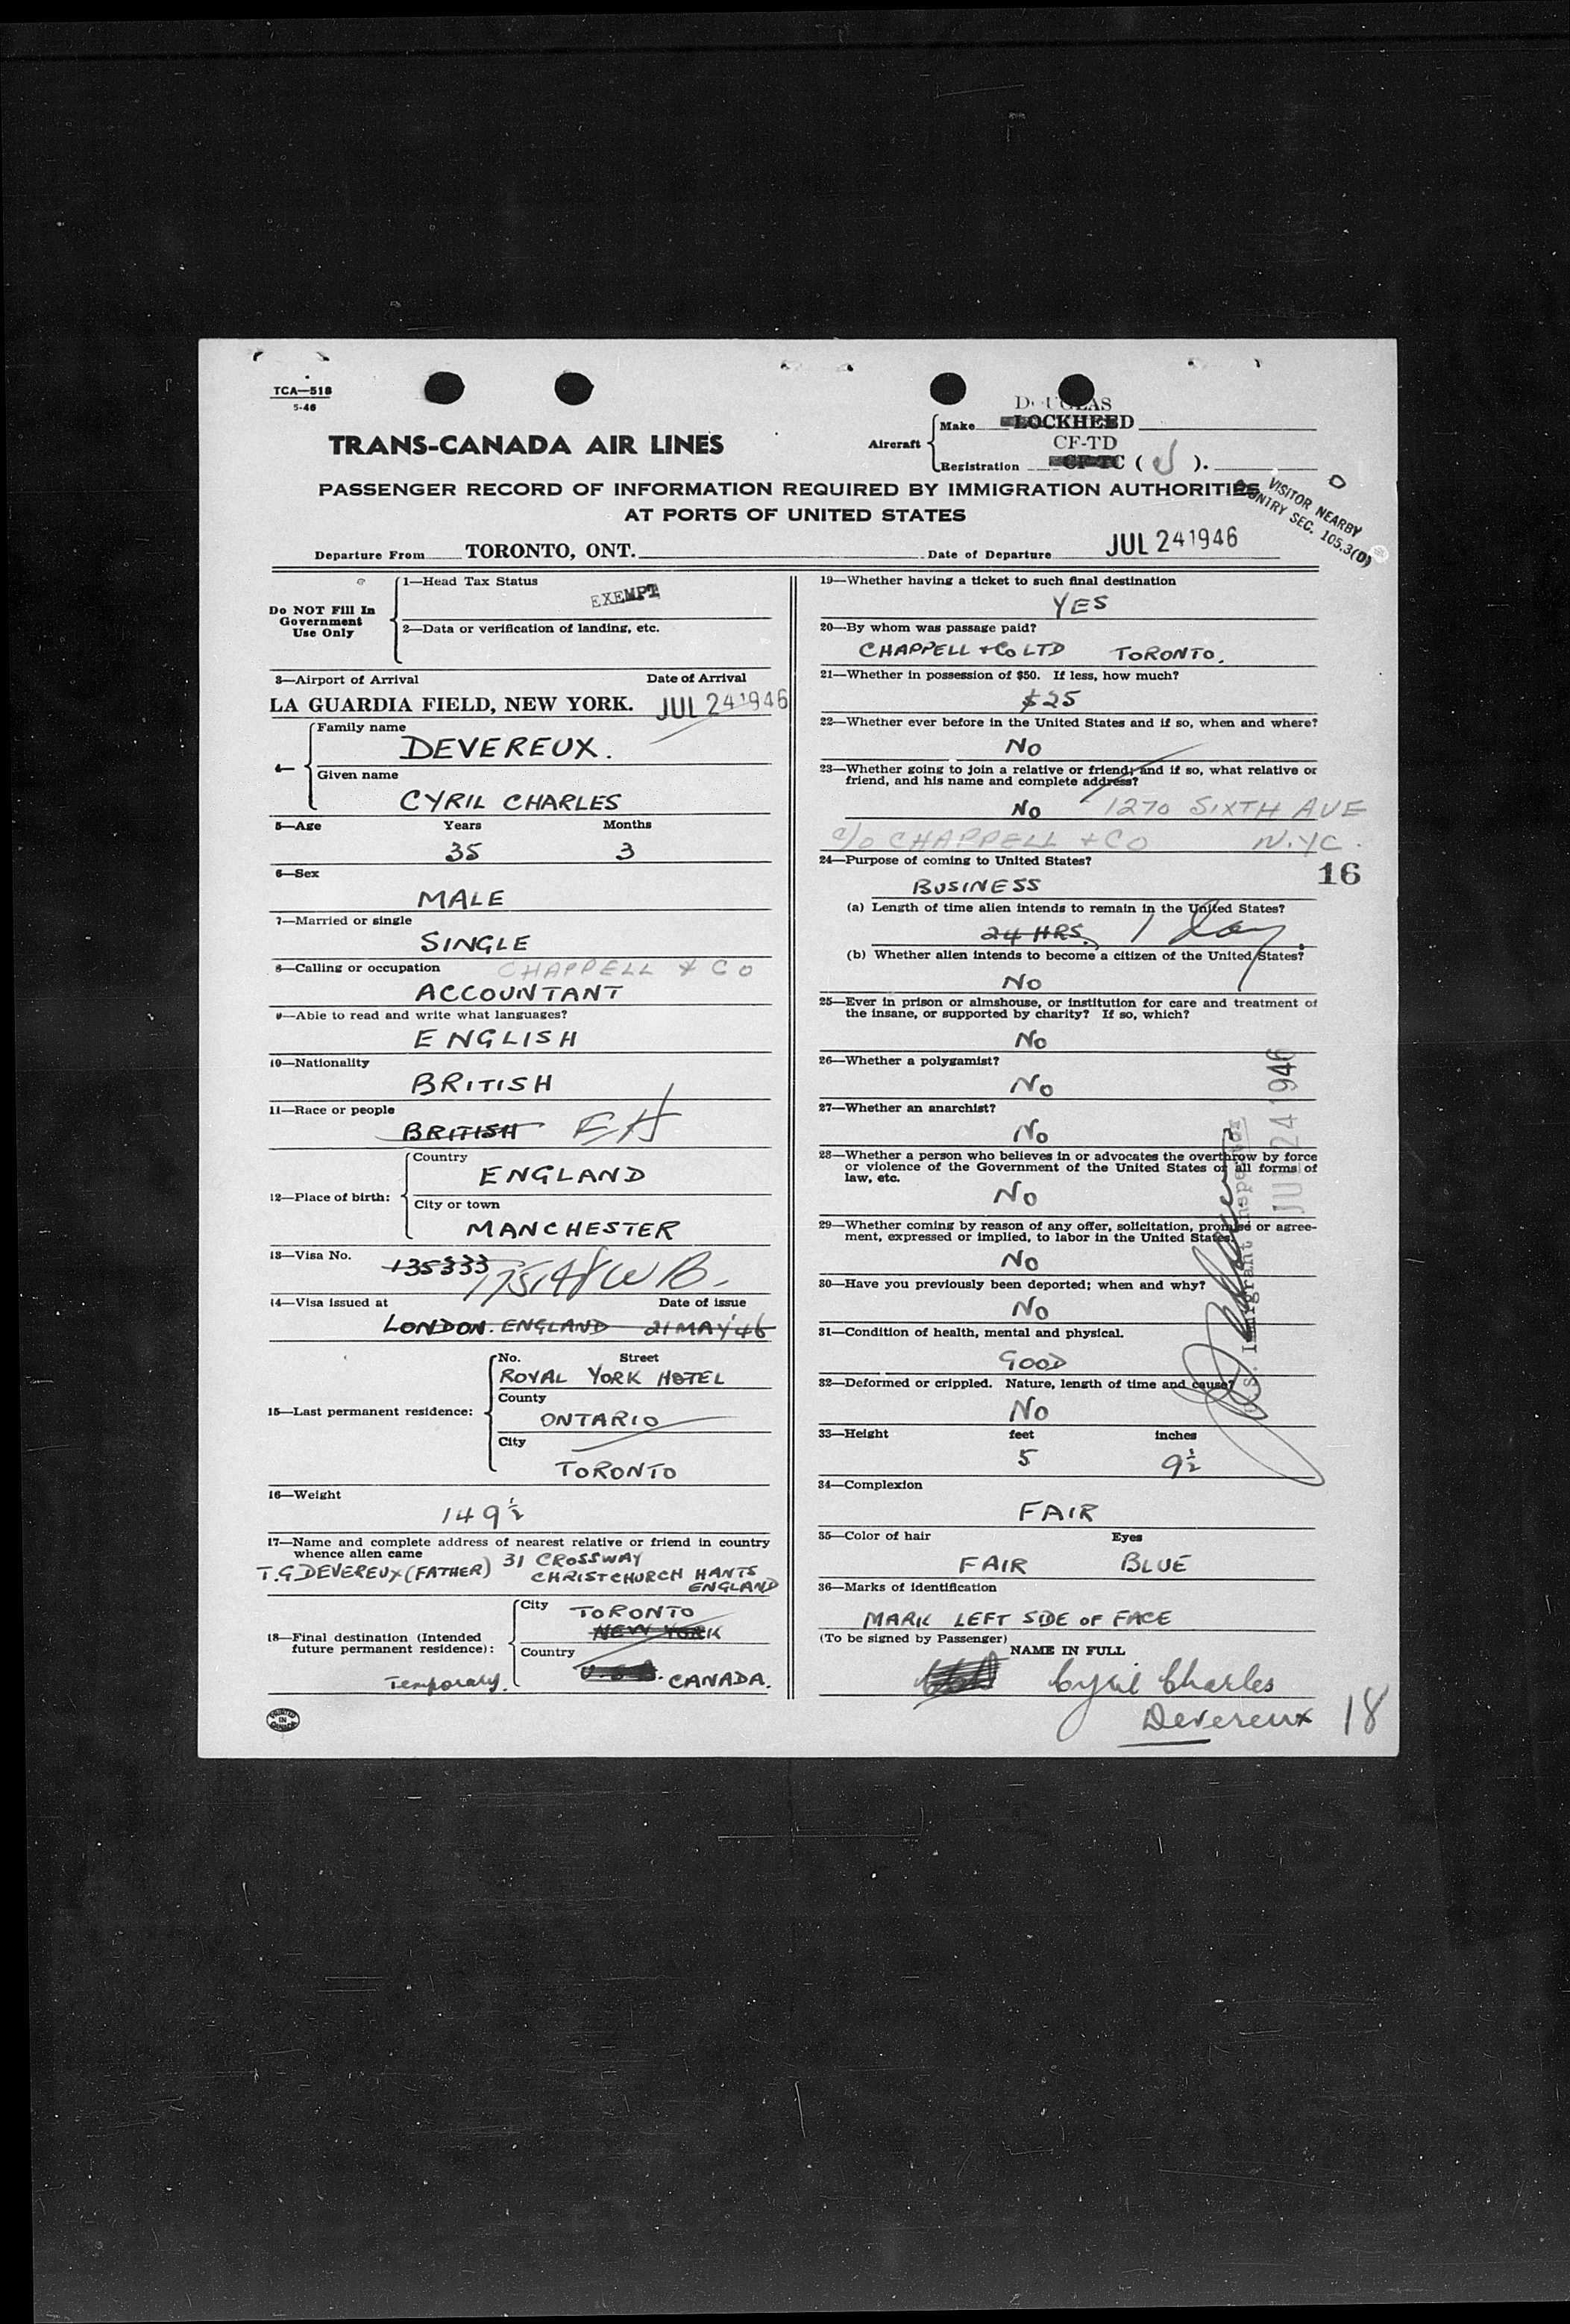 TCA—518
5-46
TRANS-CANADA AIR LINES
Aircraft
DOUGLAS
Make LOCKHEED
CF-TD
Registration CF-TC ( J ).
PASSENGER RECORD OF INFORMATION REQUIRED BY IMMIGRATION AUTHORITIES
AT PORTS OF UNITED STATES
VISITOR NEARBY
COUNTRY SEC. 105.3(D)
Departure From TORONTO, ONT.
Date of Departure JUL 24 1946
Do NOT Fill In
Government
Use Only
1—Head Tax Status
EXEMPT
2—Data or verification of landing, etc.
3—Airport of Arrival Date of Arrival
LA GUARDIA FIELD, NEW YORK. JUL 24 1946
4—
Family name
DEVEREUX.
Given name
CYRIL CHARLES
5—Age Years Months
35 3
6—Sex
MALE
7—Married or single
SINGLE
8—Calling or occupation CHAPPELL & CO
ACCOUNTANT
9—Able to read and write what languages?
ENGLISH
10—Nationality
BRITISH
11—Race or people
BRITISH
12—Place of birth:
Country
ENGLAND
City or town
MANCHESTER
13—Visa No.
135333
14—Visa issued at Date of issue
LONDON. ENGLAND 21 MAY '46
15—Last permanent residence:
No. Street
ROYAL YORK HOTEL
County
ONTARIO
City
TORONTO
16—Weight
149½
17—Name and complete address of nearest relative or friend in country
whence alien came
T.G DEVEREUX (FATHER) 31 CROSSWAY
CHRISTCHURCH HANTS
ENGLAND
18—Final destination (Intended
future permanent residence):
Temporary.
City TORONTO
NEW YORK
Country
U.S.A. CANADA.
PRINTED
IN
CANADA
19—Whether having a ticket to such final destination
YES
20—By whom was passage paid?
CHAPPELL & Co LTD TORONTO.
21—Whether in possession of $50. If less, how much?
$25
22—Whether ever before in the United States and if so, when and where?
No
23—Whether going to join a relative or friend; and if so, what relative or
friend, and his name and complete address?
No 1270 SIXTH AVE
c/o CHAPPELL & CO N.Y.C.
24—Purpose of coming to United States?
16
BUSINESS
(a) Length of time alien intends to remain in the United States?
24 HRS. 1 Day
(b) Whether alien intends to become a citizen of the United States?
No
25—Ever in prison or almshouse, or institution for care and treatment of
the insane, or supported by charity? If so, which?
No
26—Whether a polygamist?
No
27—Whether an anarchist?
No
28—Whether a person who believes in or advocates the overthrow by force
or violence of the Government of the United States or all forms of
law, etc.
No
29—Whether coming by reason of any offer, solicitation, promise or agree-
ment, expressed or implied, to labor in the United States?
No
30—Have you previously been deported; when and why?
No
31—Condition of health, mental and physical.
GOOD
32—Deformed or crippled. Nature, length of time and cause?
No
33—Height feet inches
5 9½
U.S. Immigrant Inspector
JUL 24 1946
34—Complexion
FAIR
35—Color of hair Eyes
FAIR BLUE
36—Marks of identification
MARK LEFT SIDE OF FACE
(To be signed by Passenger)
NAME IN FULL
Cyril Charles
Devereux
18